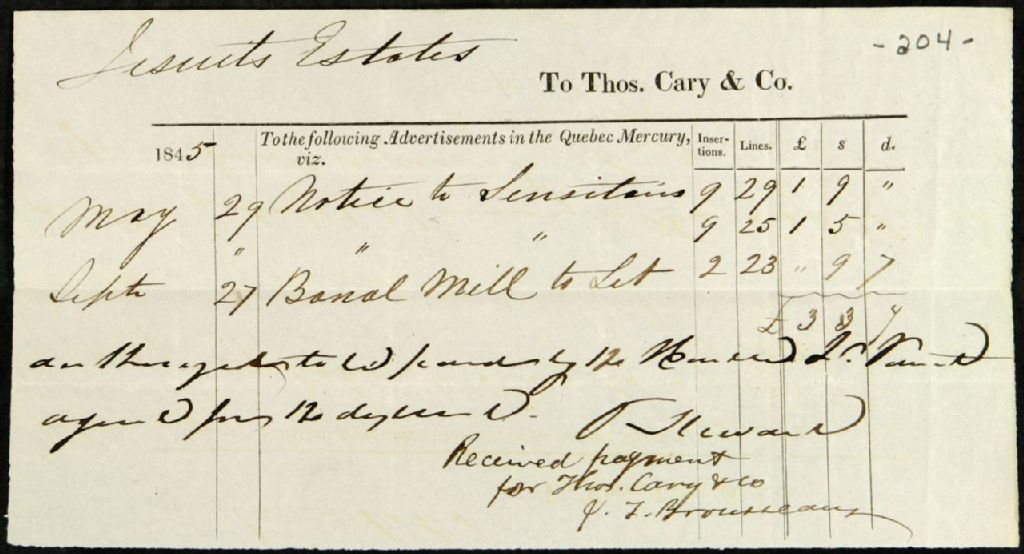 Jesuits Estates
- 204 -
To Thos. Cary & Co.
1845 To the following Advertisements in the Quebec Mercury, viz. Inser-tions. Lines. £ s d.
May 29 Notice to Sensitaires 9 29 1 9 "
" " " 9 25 1 5 "
Septr 27 Banal Mill to Let 2 23 " 9 7
£ 3 3 7
to by the
agent for
Steward
Received payment
for Thos. Cary & Co
J. T. Brousseau